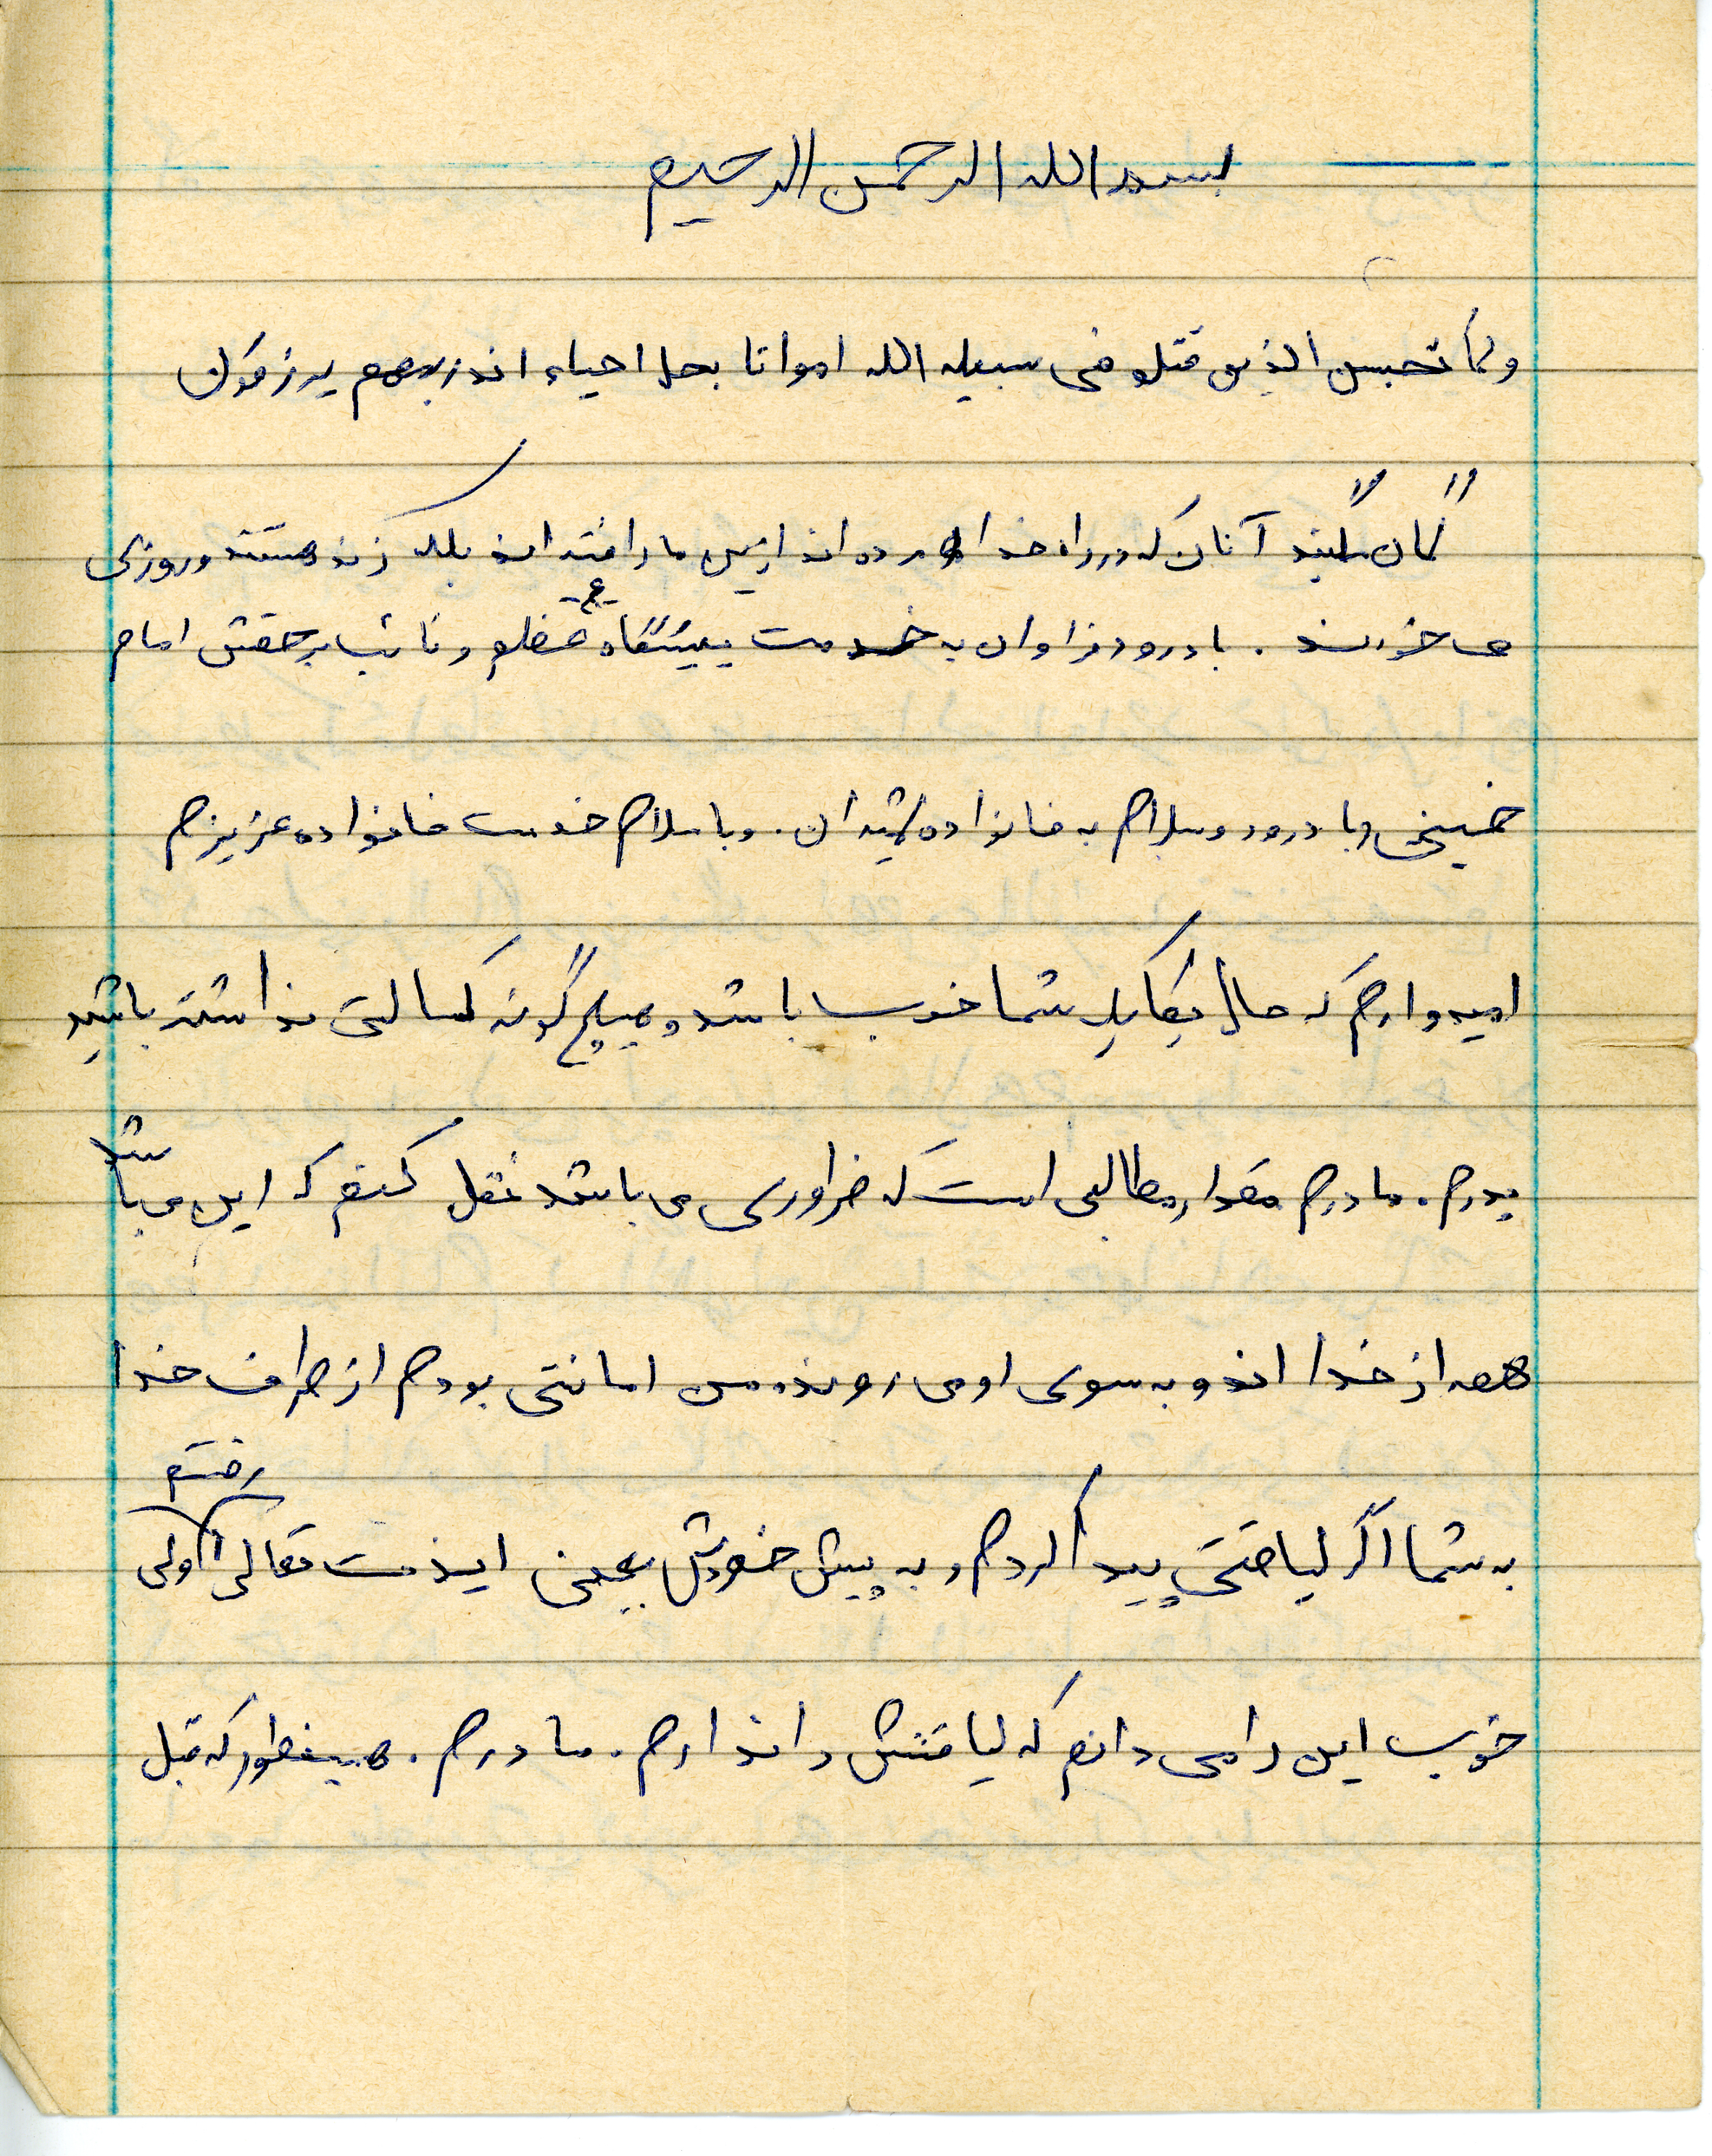 بسم الله الرحمن الرحیم
ولا تحبسن الذین قتلو فی سبیله الله امواتا بحل احیاء اندربهم یرزقون
گمان مکنید آنان که در راه خدا مرده اند از بین ما رافته اند بلکه زنده هستند و روزی
می خورند . با درود فراوان به خدمت پیشگاه عج و نائب برحقش امام
خمینی و با درود و سلام به خانواده شهیدان . و با سلام خدمت خانواده عزیزم
امیدوارم که حال یکایک شما خوب باشد و هیچ گونه کسالتی نداشته باشید
پدرم . مادرم مقدار مطالبی است که ضراوری می باشد نقل کنم که این می باشد
همه از خدا اند و به سوی او می روند . من امانتی بودم از طراف خدا
به شما اگر لیاقتی پیدا کردم و به پیش خودش یعنی ایزدمت تعالی رفتم ولی
خوب این را می دانم که لیاقتش را ندارم . مادرم . همینطور که قبل